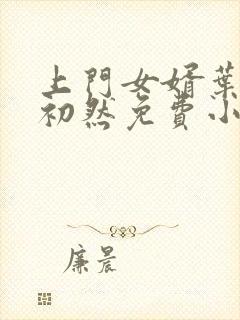 上門女婿葉
初然免費小
廉晨